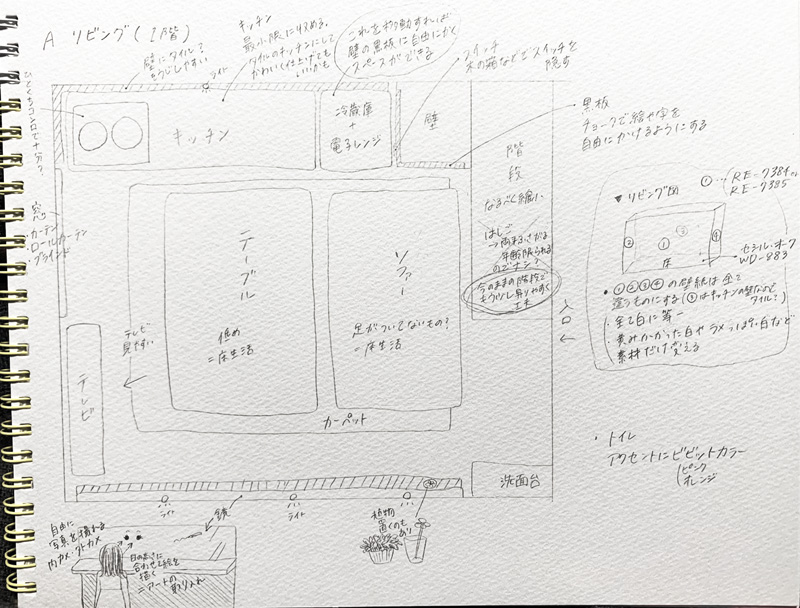 A リビング(1階)
キッチン
最小限に収める。
タイルのキッチンにして
かわいく仕上げても
いいかも
これを移動すれば
壁の黒板に自由にかく
スペースができる
壁にタイル?
そうじしやすい
ライト
スイッチ
木の箱などでスイッチを
隠す
ひとくちコンロで十分?
キッチン
冷蔵庫
+
電子レンジ
壁
黒板
チョークで絵や字を
自由にかけるようにする
階
段
なるべく縮小
はしご
年齢限られる
のでナシ?
今のままの階段で
もう少し昇りやすく
工夫
入口
←
窓
・カーテン
・ロールカーテン
・ブラインド
テーブル
低め
=床生活
ソファー
足がついてないもの?
=床生活
テレビ
見やすい
テレビ
カーペット
▼リビング図
①…(RE-7384 or
RE-7385
① ② ③ ④
床
セミル・オーク
WD-883
・①②③④の壁紙は全て
違うものにする(③はキッチンの壁なので
タイル?)
・全て白に統一
・黄みがかった白やラメっぽい白など
素材だけ変える
・トイレ
アクセントにビビットカラー
(ピンク
オレンジ
洗面台
ライト
鏡
ライト
植物
置くのも
あり
自由に
写真を撮れる
内カメ・外カメ
目の高さに
合わせて絵を
描く
=アートの
取り入れ